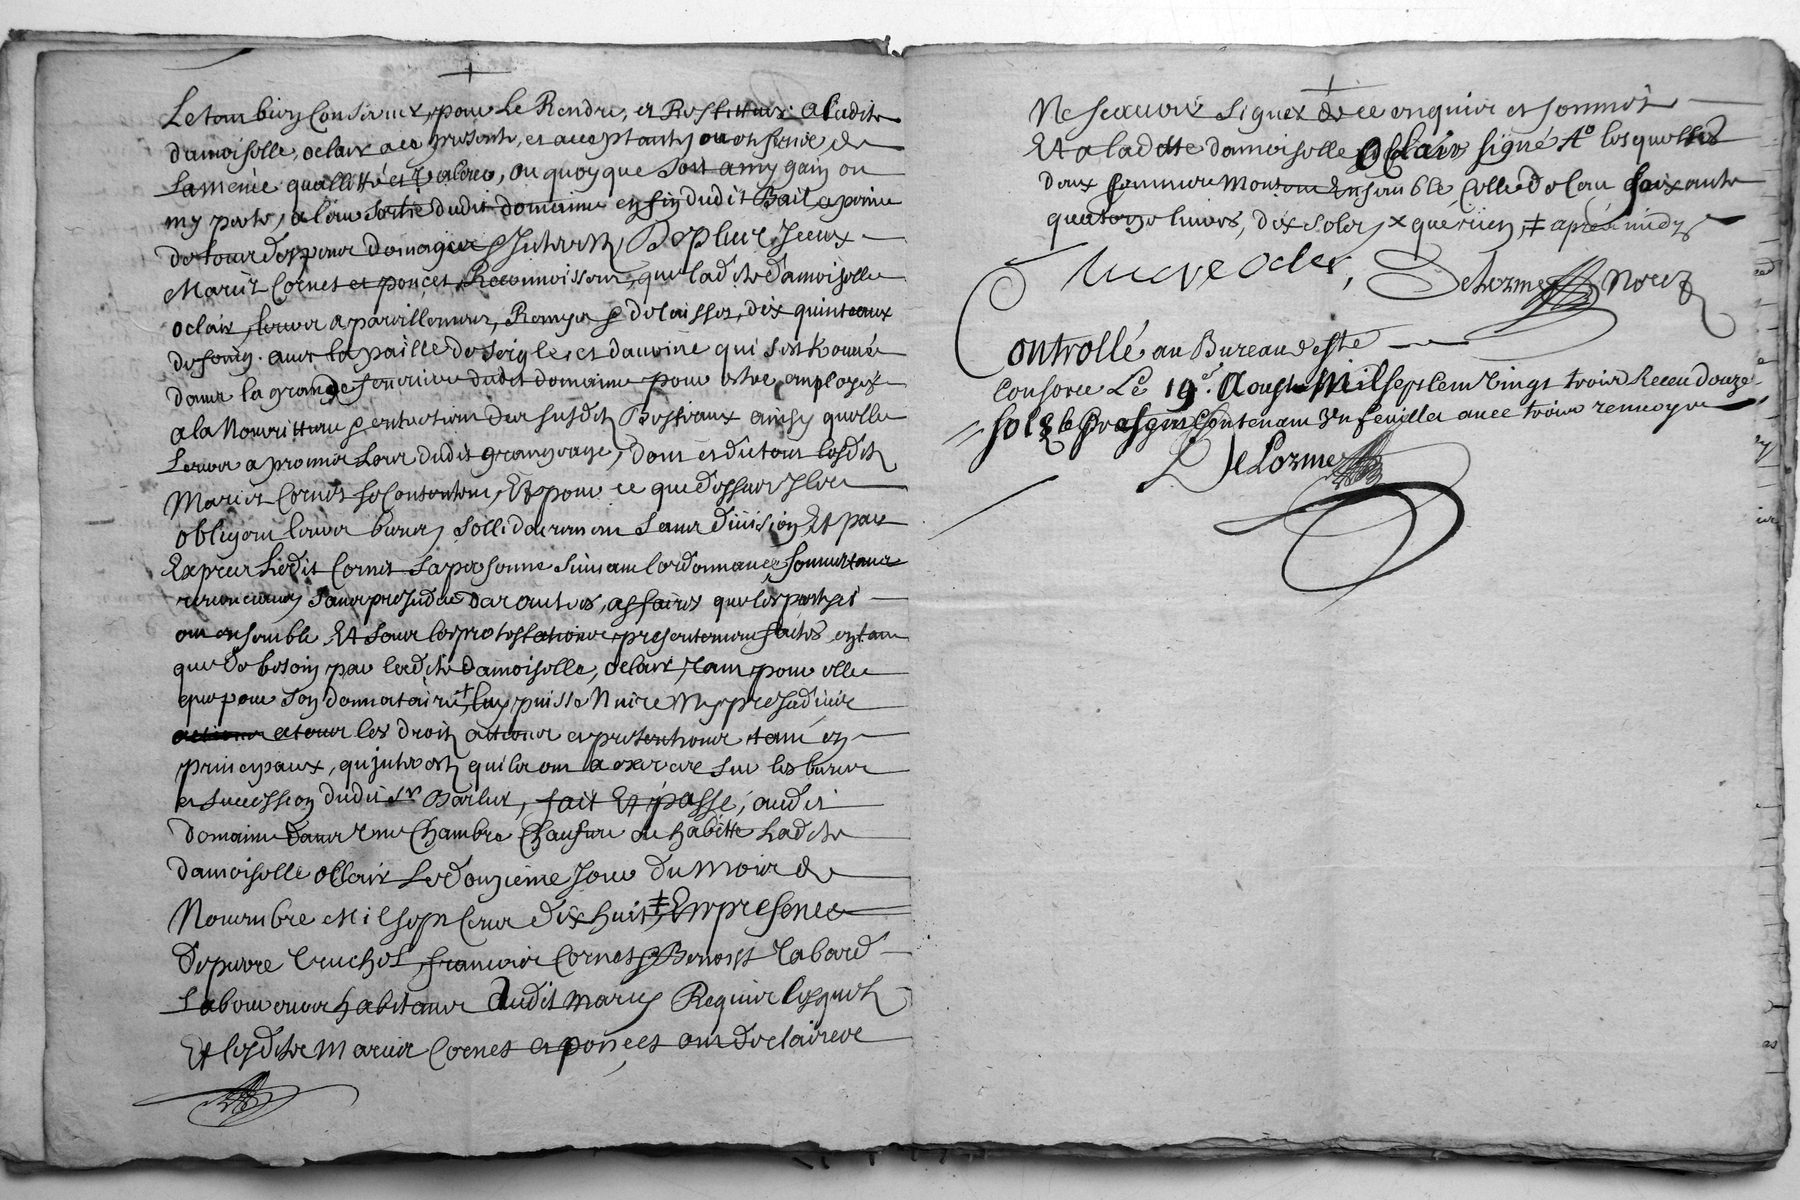 Le tout bien Conserver, pour Le Rendre, et Restituer a ladite
damoiselle, oclair ace presente, et acceptante, ou en finie de
La meme quallitté et Valeur, ou quoy que soit a my gain ou
my perte, a leur sortie dudit domaine en fin dudit Bail, a peine
de tous despens domages Interets, De plus Iceux
Mariés Cornet et poncet Reconnoissent, que ladite damoiselle
oclair, leur a pareillement, Remis & delaisser, dix quinteaux
de foing avec la paille de seigle, et d'avoine qui s'est trouvée
dans la grande feneriere dudit domaine pour estre employée
a la Nourriture & entretien des susdits Bestiaux ainsy quelle
Leur a promis Lors dudit grangeage, dont et du tout lesdits
Mariés Cornet se Contentent, Et pour ce que dessus Ils
obligent leurs biens sollidairement sans division Et par
Exprès Ledit Cornet sa personne suivant l'ordonnance, soumettans
renoncians sans prejudice dea autres, affaires que les parties
ont ensemble Et sous les protestations presentement faites en tant
que de besoin par ladite damoiselle, oclair, tant pour elle
que pour son donnataire + luy puisse Nuire Ny prejudicier
a tous les droits actions et pretentions tant en
principaux, qu'interets quils ont a exercer sur les biens
et succession dudit Sr Barlet, fait Et passé, audit
domaine dans Une Chambre Chaufure ou habitte Ladite
damoiselle oclair Le douzieme Jour Du Mois de
Novembre Mil sept Cent dix huit ‡ En presence
De pierre Truchet, francois Cornet & Benoist Tabard
Laboureurs habitans dudit Requis lesquels
Et lesdits Mariés Cornet et poncet ont declairé
Ne scavoir signer de ce enquis et sommés
Et a ladite damoiselle oclair signé Ao lesquelles
deux sommes montent Ensemble Celle de Cent soixante
quatorze livres, dix sols, ‡ après midy
Delorme Nore
Controllé au Bureau d'
Consorce Le 19e. Aoust Mil sept cent vingt trois Receu douze
sols le present Contenant Un feuillet avec trois renvoys
DeLorme